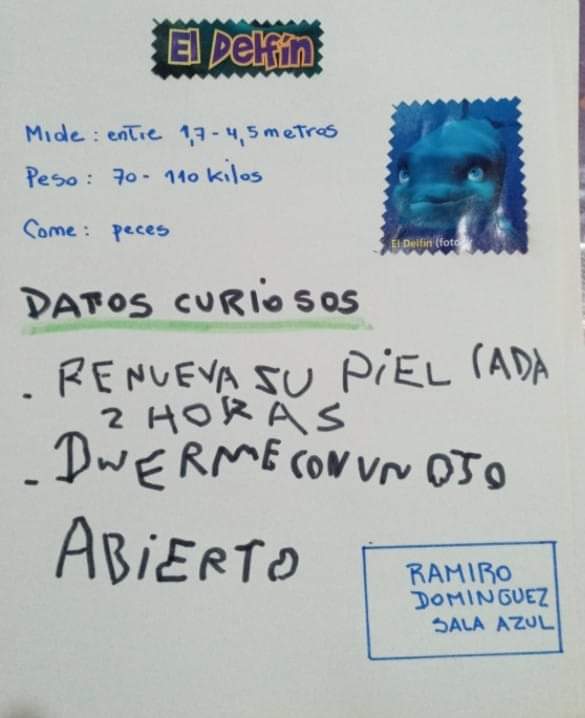 El Delfín
Mide: entre 1,7-4,5 metros
Peso: 70-110 kilos
Come: peces
El Delfín (foto
DATOS CURIOSOS
- RENUEVA SU PIEL CADA
2 HORAS
- DUERME CON UN OJO
ABIERTO
RAMIRO
DOMINGUEZ
SALA AZUL